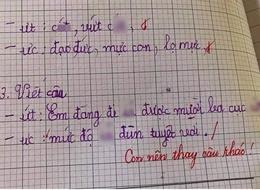 - ứt : cứt, vứt
- ức : đạo đức, mực con, lọ mực
3. Viết câu
- ứt : Em đang đi được mười ba cục
- ức : mứt độ đỉn tuyệt vời . !
Con nên thay câu khác !